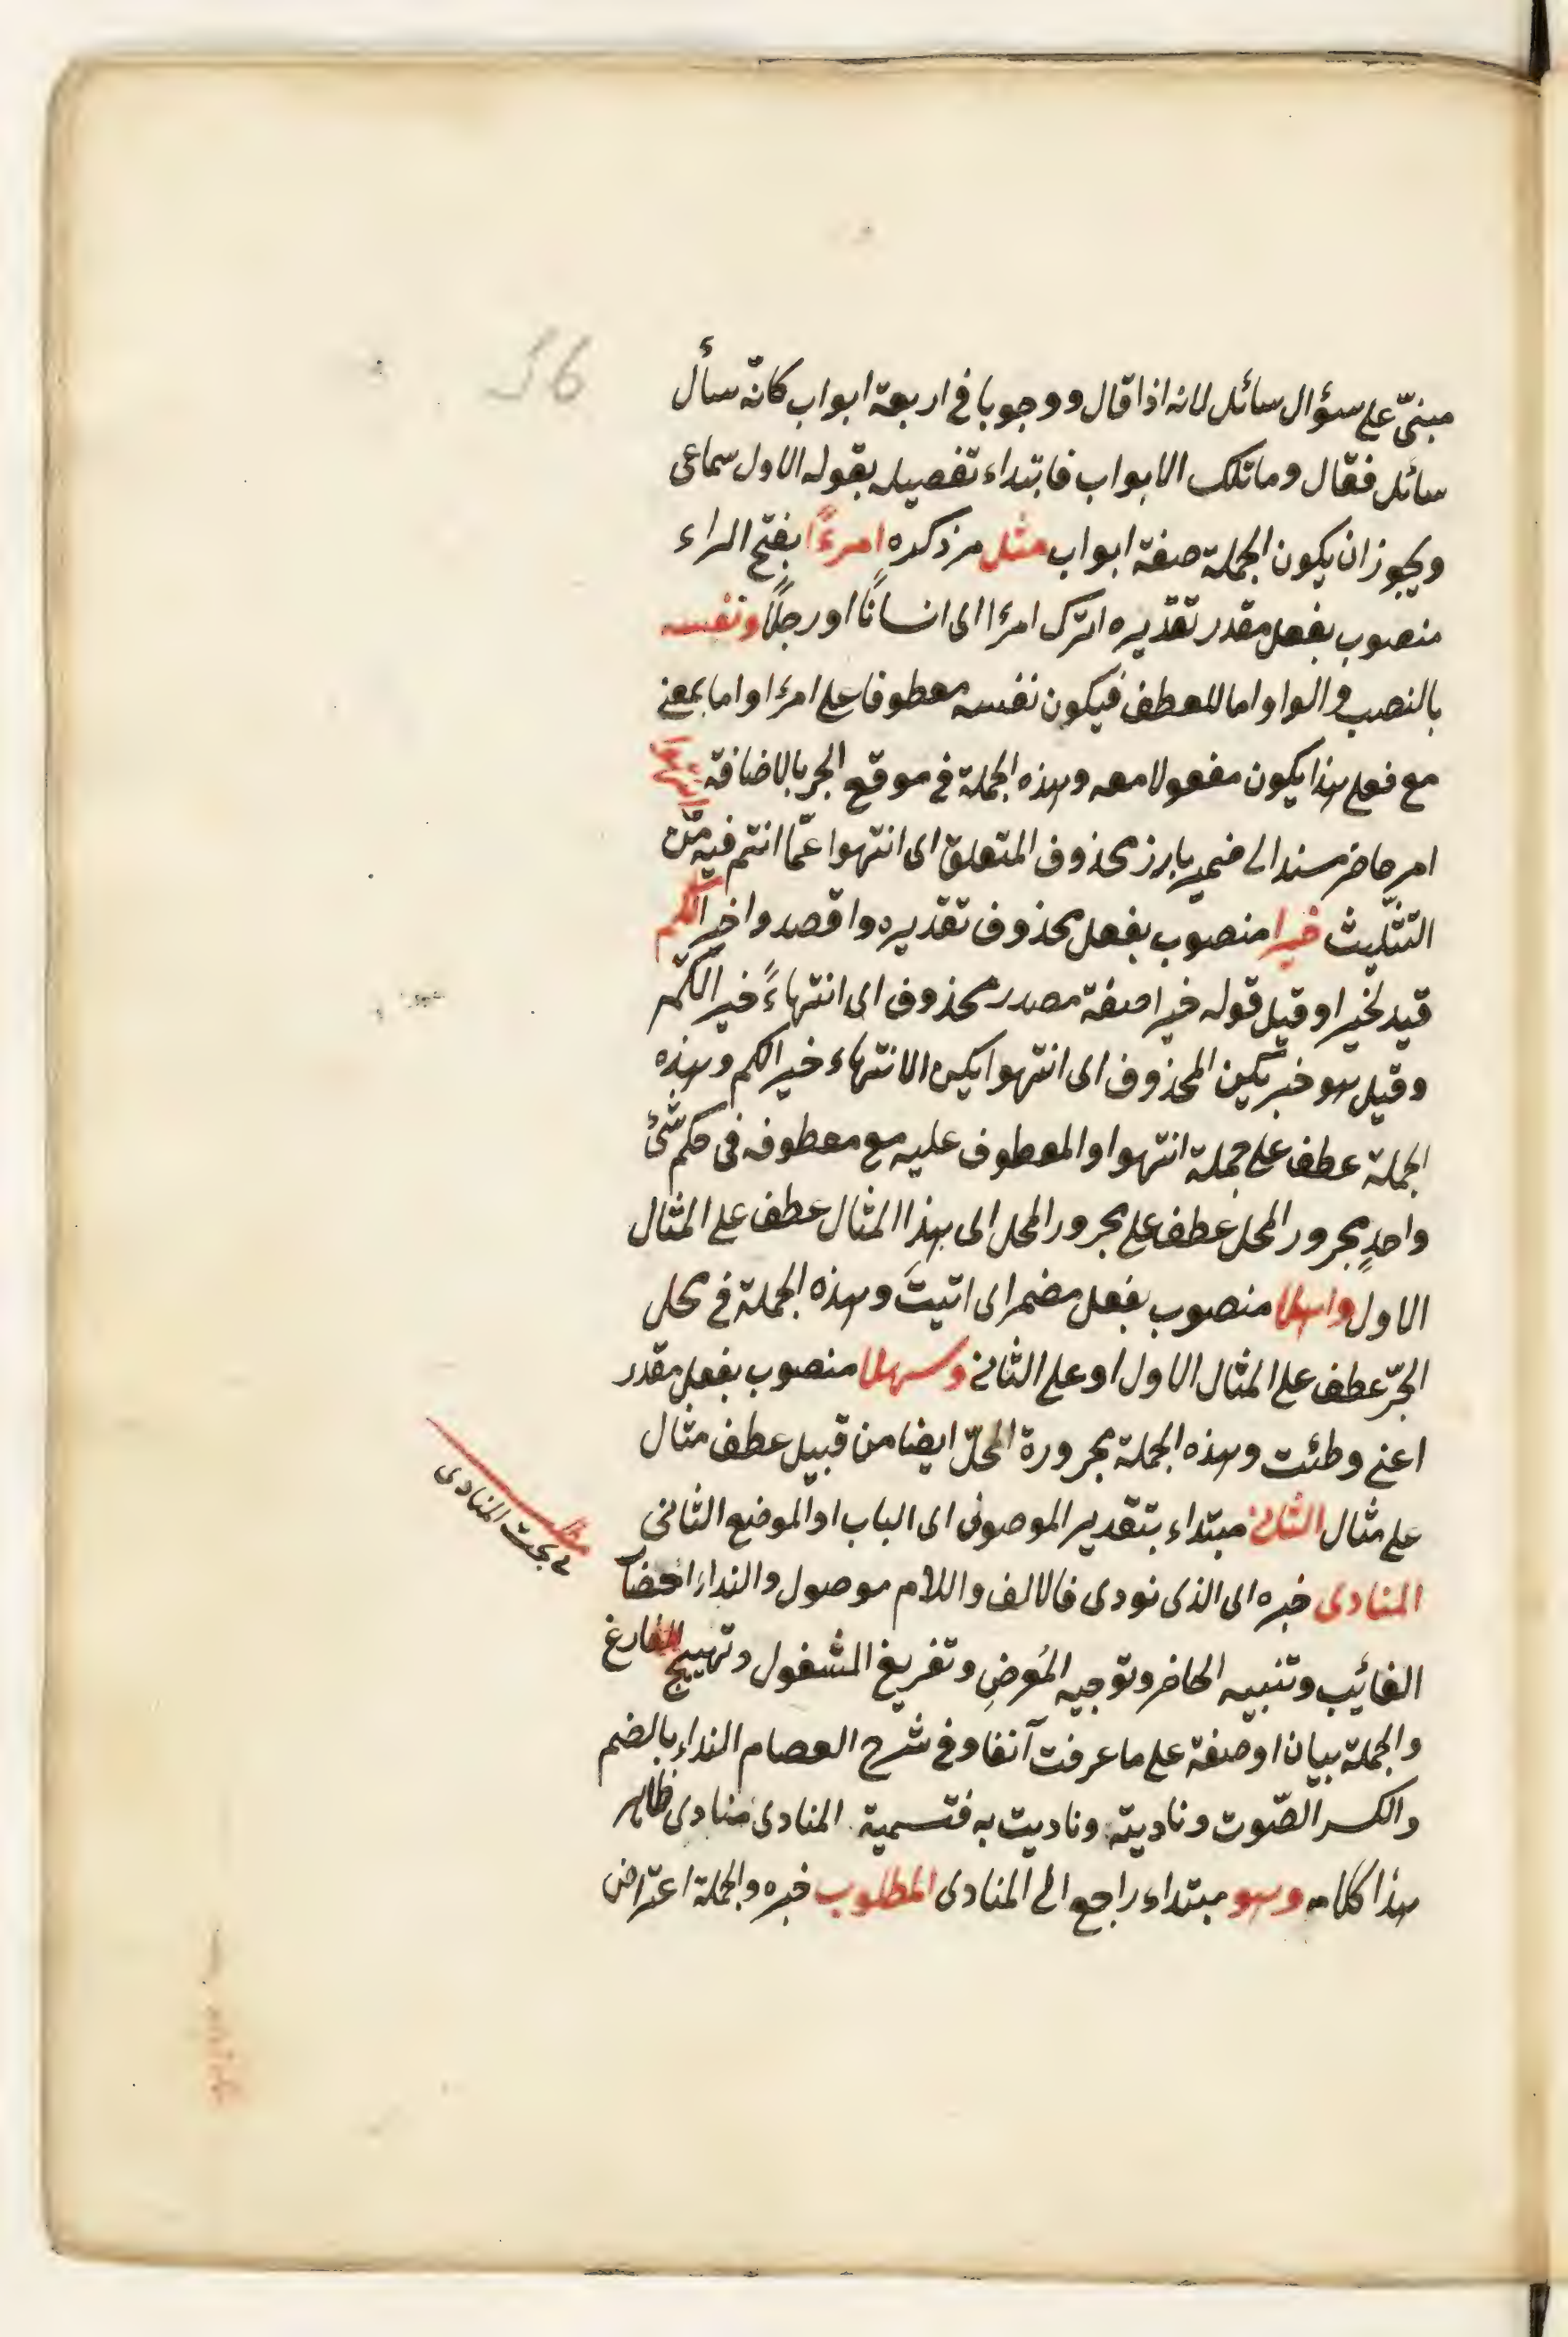 56
مبنىّ على سؤال سائل لانه اذا قال ووجوبا فى اربعة ابواب كانّه سأل
سائل فقال وما تلك الابواب فابتداء تفصيله بقوله الاول سماعى
ويجوز ان يكون الجملة صفة ابواب مثل مر ذكره امرءً بفتح الراء
منصوب بفعل مقدر تقديره اترك امرءا اى انسانًا او رجلًا ونفسه
بالنصب والواو اما للعطف فيكون نفسه معطوفا على امرءا واما بمعنى
مع فعلى هذا يكون مفعولا معه وهذه الجملة فى موقع الجر بالاضافة
امر حاضر مسند الى ضمير بارز محذوف المتعلق اى انتهوا عمّا انتم فيه من
التثليث خيرا منصوب بفعل محذوف تقديره واقصدوا خيرا لكم
قيد لخيرا وقيل قوله خيرا صفة مصدر محذوف اى انتهاءً خيرا لكم
وقيل هو خبر يكن المحذوف اى انتهوا يكن الانتهاء خيرا لكم وهذه
الجملة عطف على جملة انتهوا والمعطوف عليه مع معطوفه فى حكم شئ
واحدٍ مجرور المحل عطف على مجرور المحل اى هذا المثال عطف على المثال
الاول واهلا منصوب بفعل مضمر اى اتيتَ وهذه الجملة فى محل
الجرّ عطف على المثال الاول او على الثانى وسهلا منصوب بفعل مقدر
اعنى وطئت وهذه الجملة مجرورة المحلّ ايضا من قبيل عطف مثال
على مثال الثانى مبتداء بتقدير الموصوف اى الباب او الموضع الثانى
المنادى خبره اى الذى نودى فالالف واللام موصول والنداء احضار
الغائب وتنبيه الحاضر وتوجيه المُعرضِ وتفريغ المشغول وتهييج الفارغ
والجملة بيان او صفة على ما عرفت آنفا وفى شرح العصام النداء بالضم
والكسر الصّوت وناديته وناديت به فتسمية المنادى منادى ظاهر
هذا كلامه وهو مبتداء راجع الى المنادى المطلوب خبره والجملة اعتراض
مطلب
فى بحث المنادى